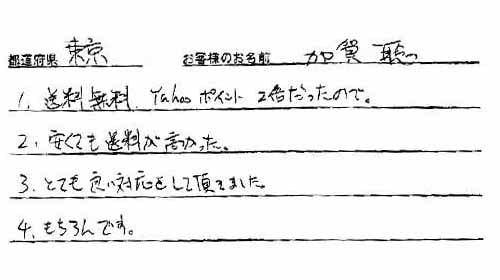 都道府県 東京 お客様のお名前 加賀 聡
1. 送料無料、Yahooポイント2倍だったので。
2. 安くても送料が高かった。
3. とても良い対応をして頂きました。
4. もちろんです。